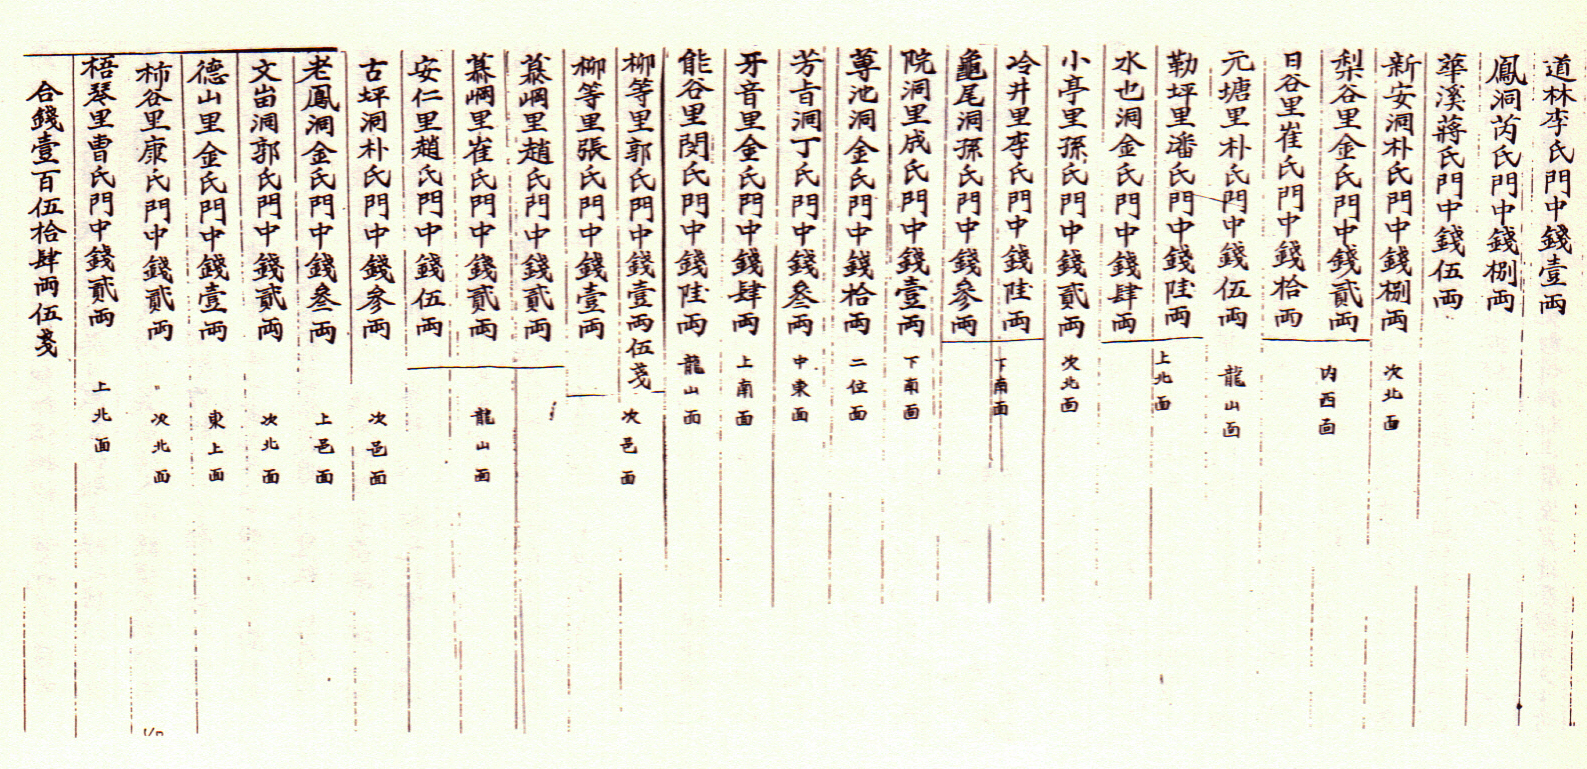 道林李氏門中錢壹両
鳳洞芮氏門中錢捌両
華溪蔣氏門中錢伍両
新安洞朴氏門中錢捌両 次北面
梨谷里金氏門中錢貳両 内西面
日谷里崔氏門中錢拾両
元塘里朴氏門中錢伍両 龍山面
勒坪里潘氏門中錢陸両 上北面
水也洞金氏門中錢肆両
小亭里孫氏門中錢貳両 次北面
冷井里李氏門中錢陸両 下南面
龜尾洞孫氏門中錢參両
院洞里成氏門中錢壹両 下南面
蓴池洞金氏門中錢拾両 二位面
芳旨洞丁氏門中錢叄両 中東面
牙音里金氏門中錢肆両 上南面
能谷里閔氏門中錢陸両 龍山面
柳等里郭氏門中錢壹両伍戔 次邑面
柳等里張氏門中錢壹両
慕綱里趙氏門中錢貳両
慕綱里崔氏門中錢貳両 龍山面
安仁里趙氏門中錢伍両
古坪洞朴氏門中錢參両 次邑面
老鳳洞金氏門中錢叄両 上邑面
文峀洞郭氏門中錢貳両 次北面
德山里金氏門中錢壹両 東上面
柿谷里康氏門中錢貳両 次北面
梧琴里曹氏門中錢貳両 上北面
合錢壹百伍拾肆両伍戔